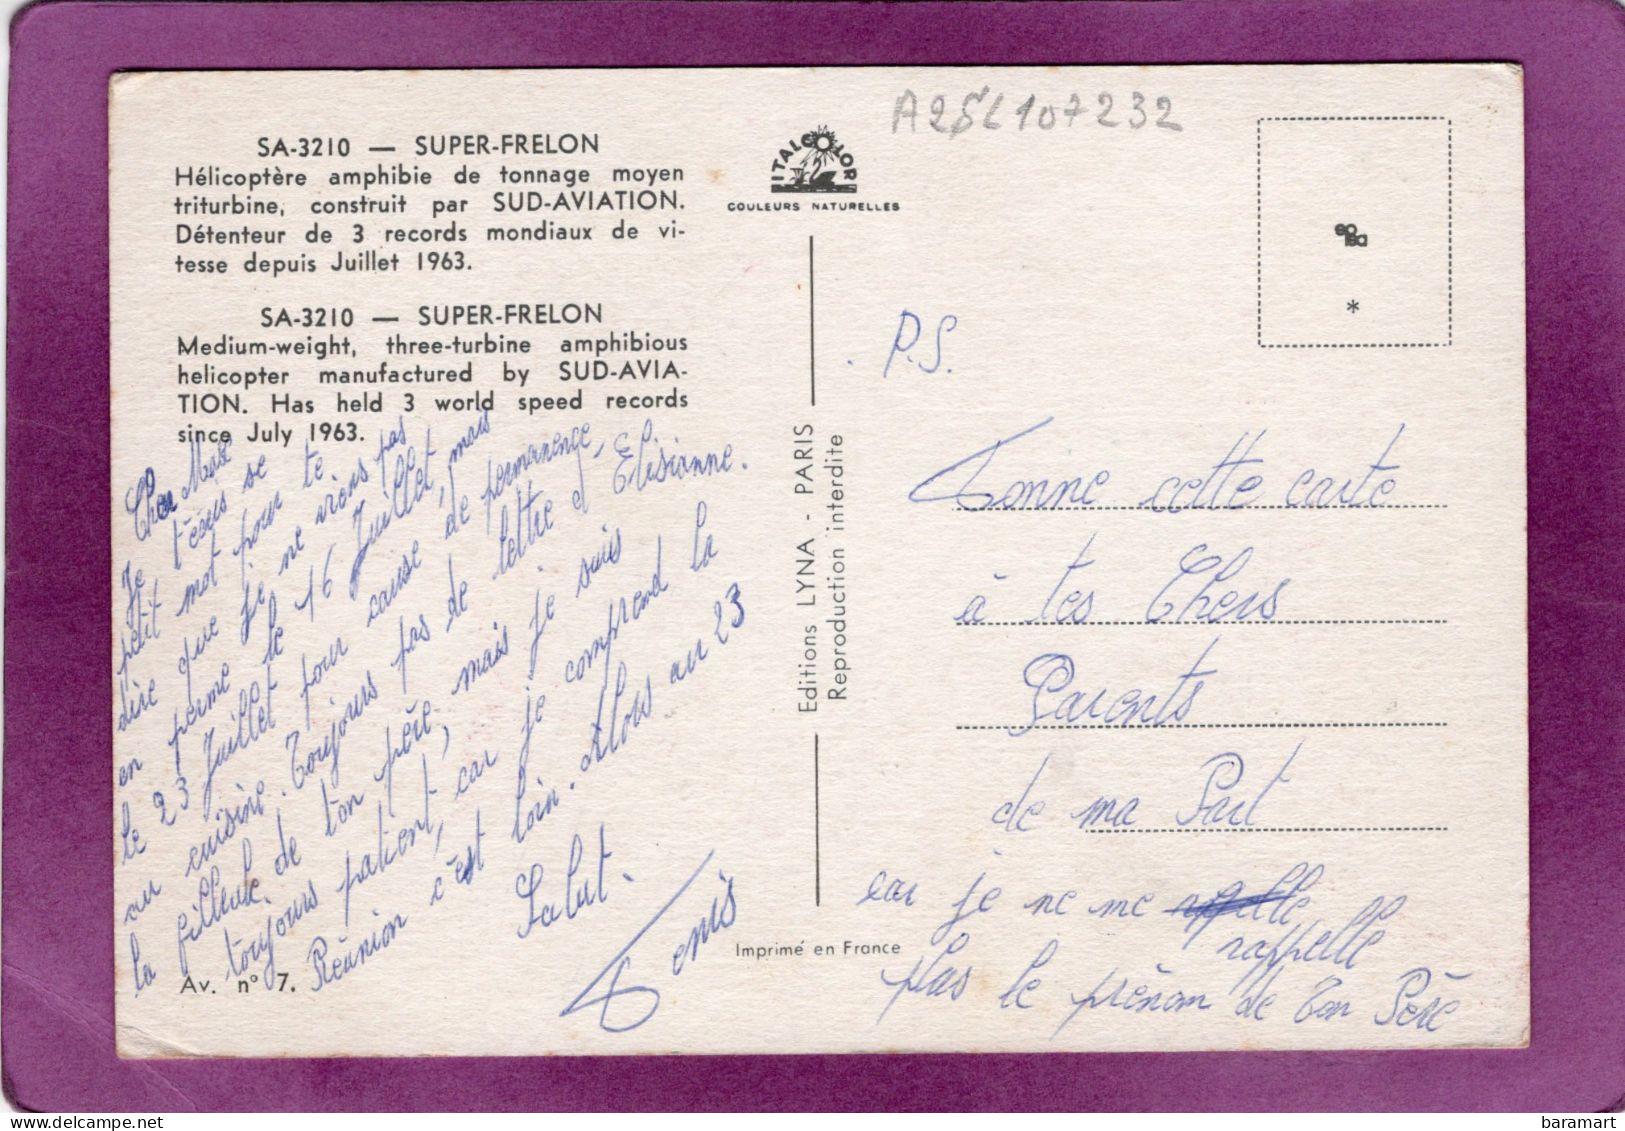 SA-3210 — SUPER-FRELON
Hélicoptère amphibie de tonnage moyen
triturbine, construit par SUD-AVIATION.
Détenteur de 3 records mondiaux de vi-
tesse depuis Juillet 1963.
SA-3210 — SUPER-FRELON
Medium-weight, three-turbine amphibious
helicopter manufactured by SUD-AVIA-
TION. Has held 3 world speed records
since July 1963.
Cher
Je t'écris se
petit mot pour te
dire que je ne viens pas
en perme le 16 Juillet, mais
le 23 Juillet pour cause de permanence,
au cuisine. Toujours pas de lettre d'Elisianne.
la filleule de ton père, mais je suis
toujours patient, car je comprend la
Réunion c'est loin. Alors au 23
Salut.
Denis
Av. n° 7.
ITALCOLOR
COULEURS NATURELLES
Editions LYNA - PARIS
Reproduction interdite
Imprimé en France
A25L107232
P.S.
Donne cette carte
à tes Chers
Parents
de ma Part
car je ne me
rappelle
plas le prénom de Ton Père
*
baramart